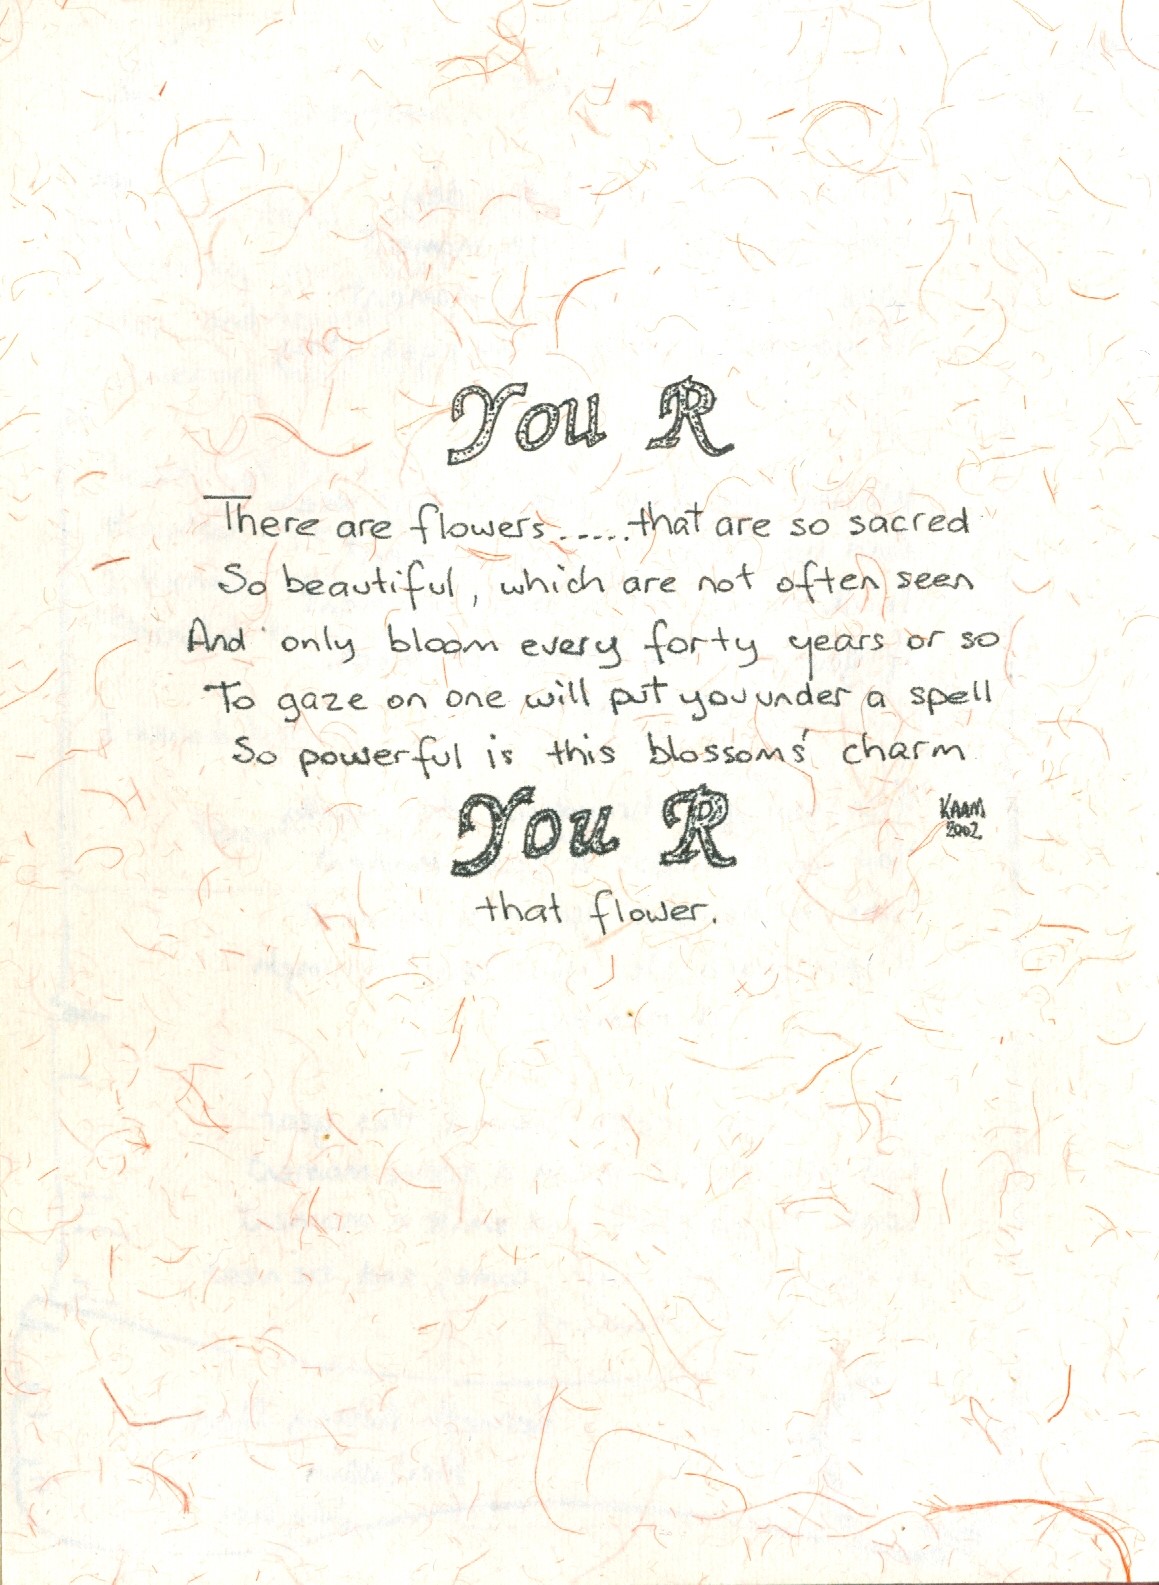 You R
There are flowers.....that are so sacred
So beautiful, which are not often seen
And only bloom every forty years or so
To gaze on one will put you under a spell
So powerful is this blossoms' charm
You R
KAAM
2002
that flower.